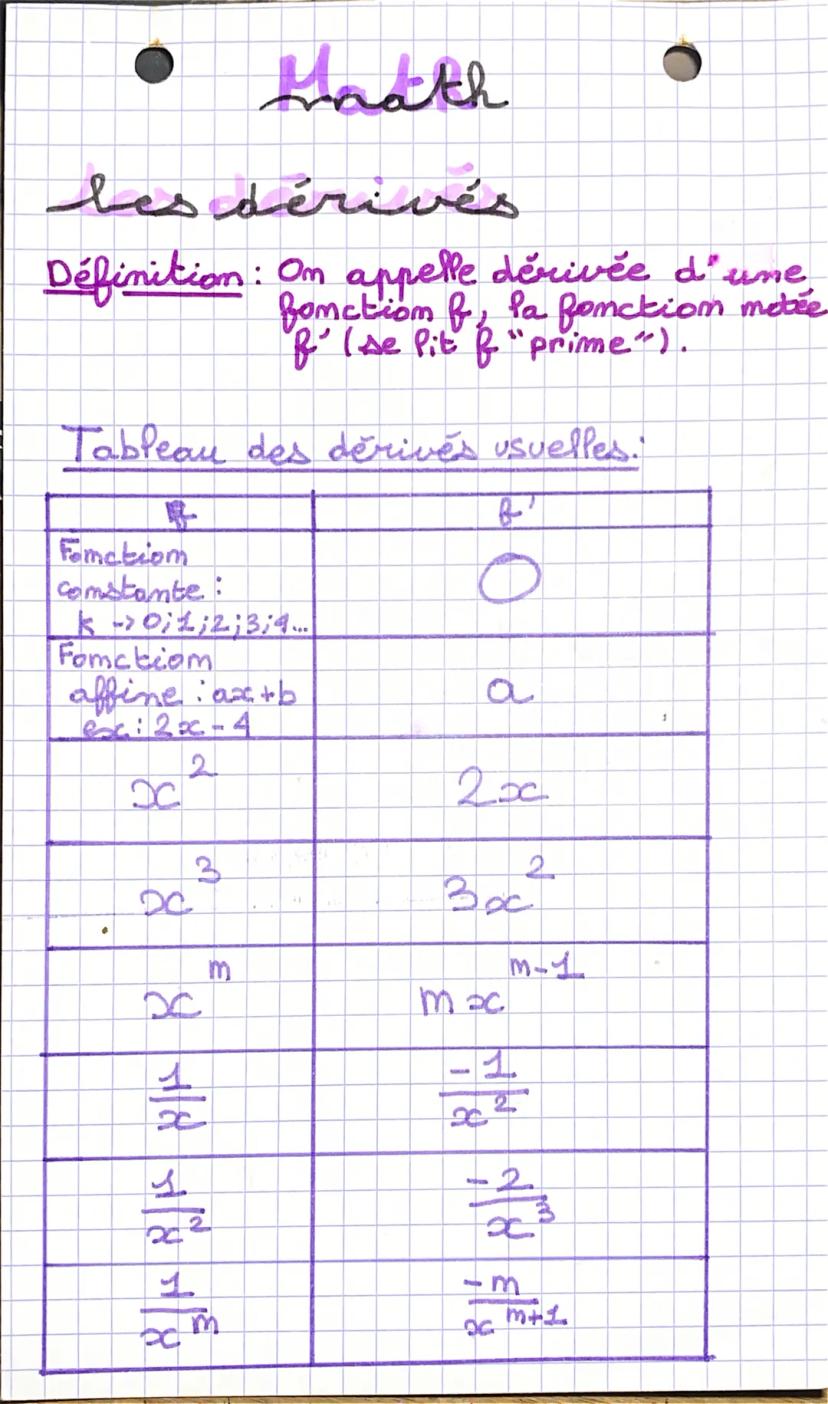 Math
Les dérivés
Définition : On appelle dérivée d'une
fonction f, la fonction notée
f' (se lit f "prime").
Tableau des dérivés usuelles :
f f'
Fonction
constante :
k -> 0;1;2;3;4...
0
Fonction
affine : ax+b
ex : 2x-4
a
x² 2x
x³ 3x²
xⁿ nxⁿ⁻¹
1/x -1/x²
1/x² -2/x³
1/xⁿ -n/xⁿ⁺¹